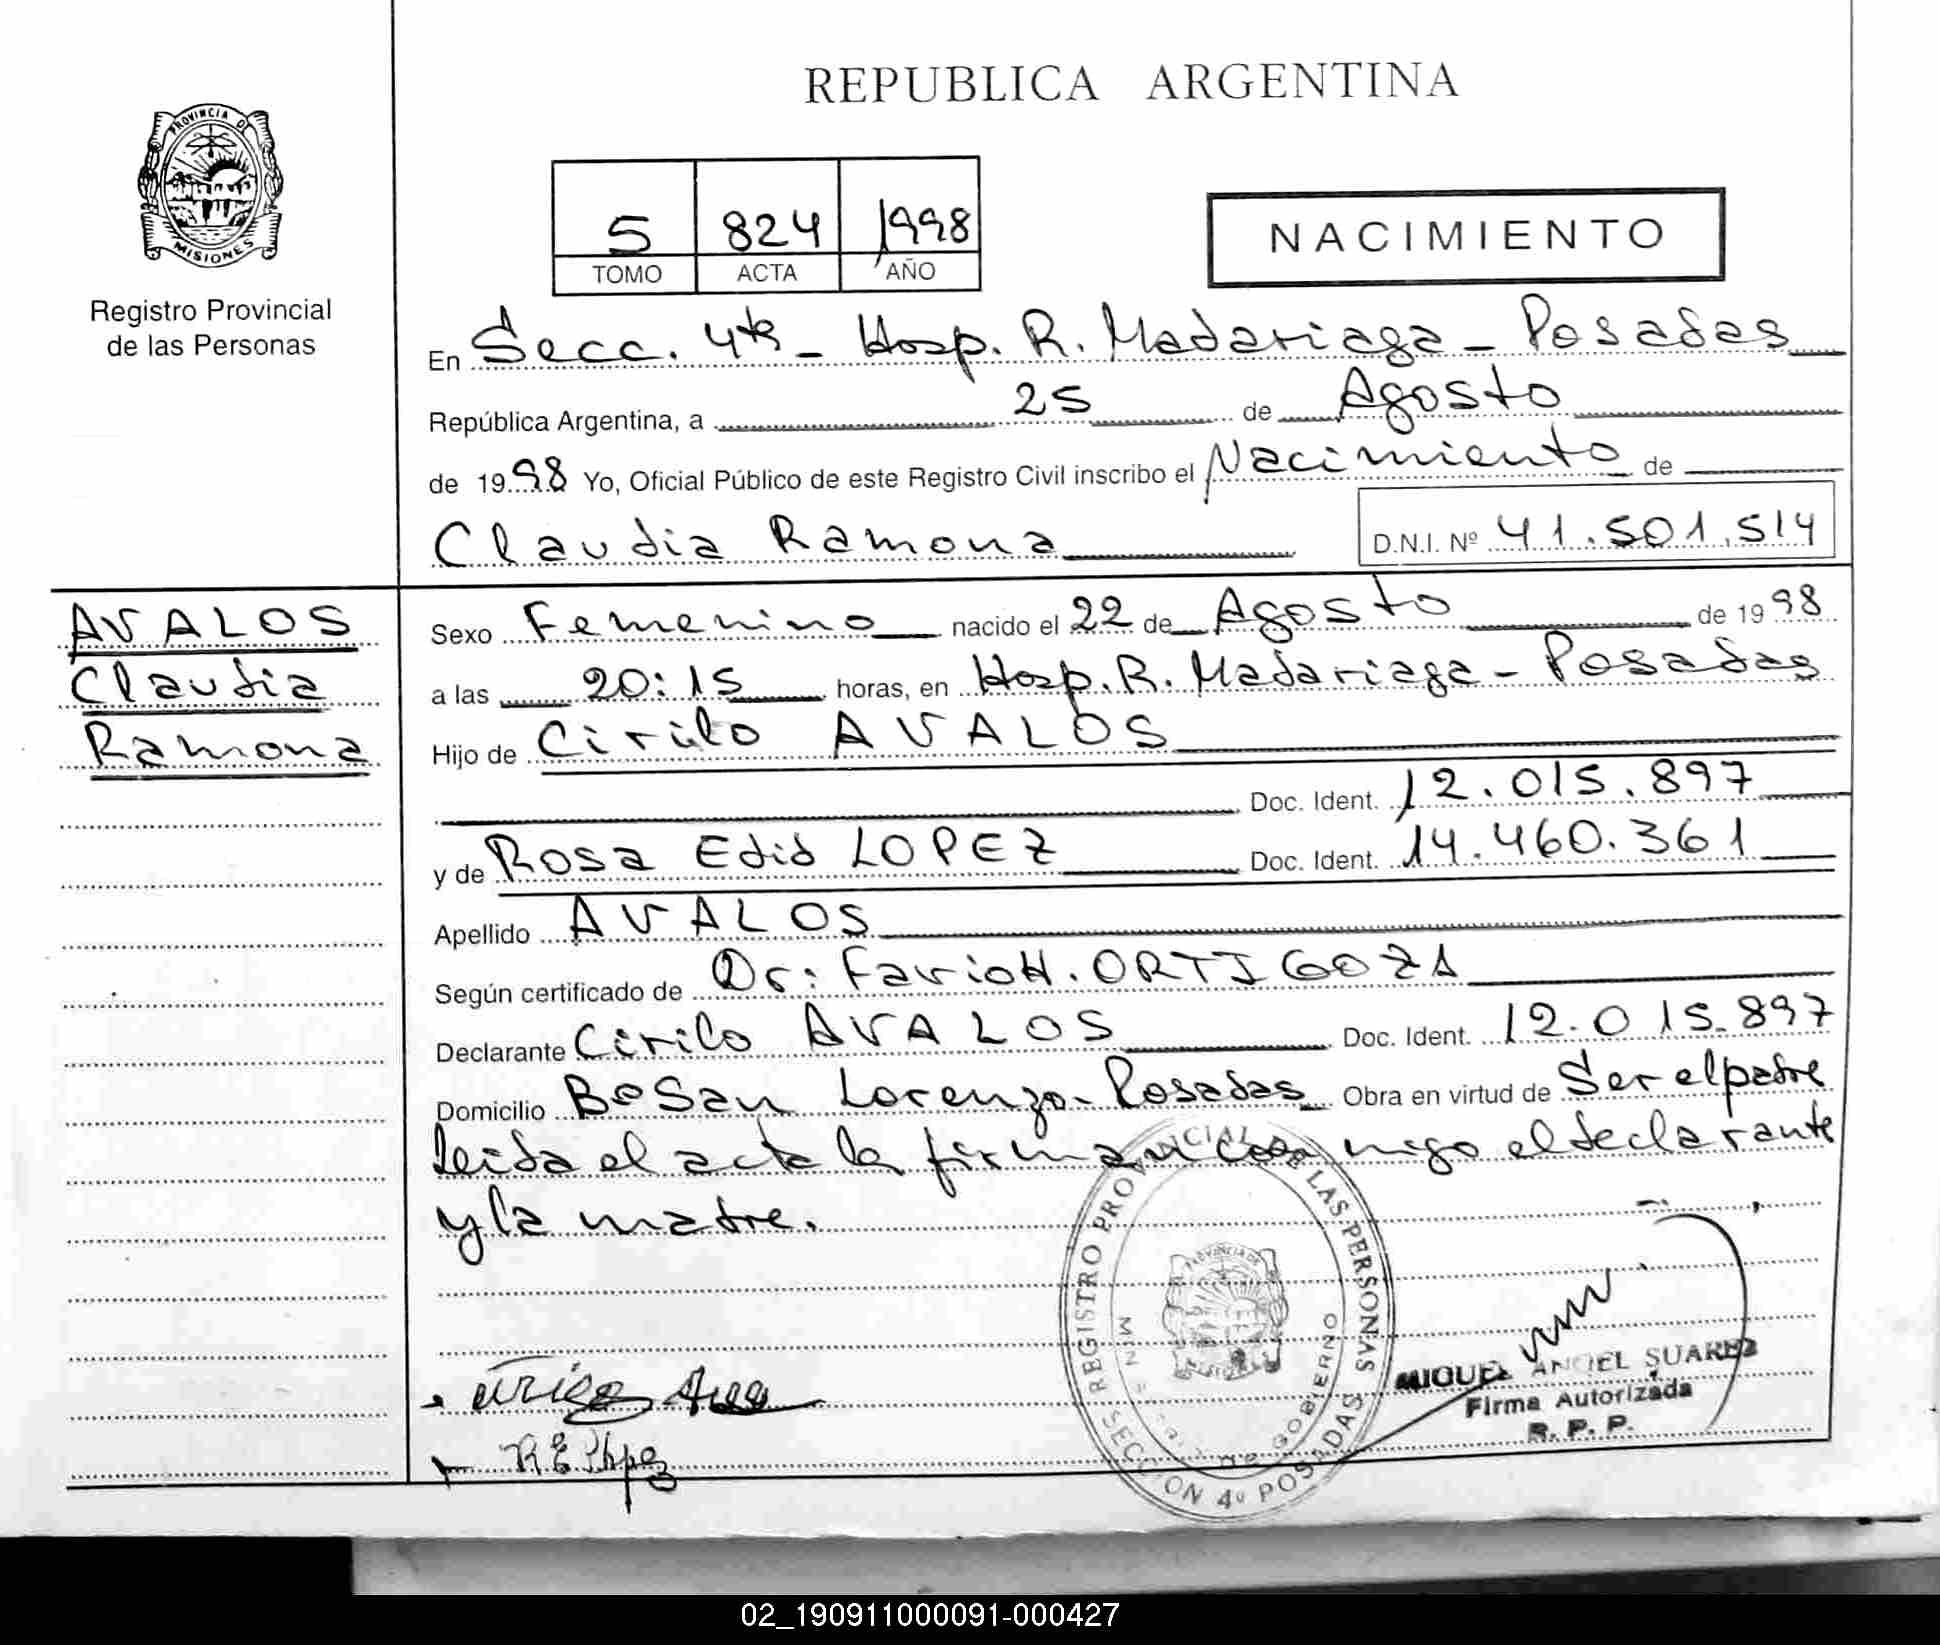 REPUBLICA ARGENTINA
PROVINCIA DE
MISIONES
Registro Provincial
de las Personas
5 824 1998
TOMO ACTA AÑO
NACIMIENTO
En Secc. 4ta - Hosp. R. Madariaga - Posadas
República Argentina, a 25 de Agosto
de 1998 Yo, Oficial Público de este Registro Civil inscribo el Nacimiento de
Claudia Ramona D.N.I. Nº 41.501.514
AVALOS
Claudia
Ramona
Sexo Femenino nacido el 22 de Agosto de 1998
a las 20:15 horas, en Hosp. R. Madariaga - Posadas
Hijo de Cirilo AVALOS
Doc. Ident. 12.015.897
y de Rosa Edid LOPEZ Doc. Ident. 14.460.361
Apellido AVALOS
Según certificado de Dr: Favio H. ORTIGOZA
Declarante Cirilo AVALOS Doc. Ident. 12.015.897
Domicilio Bº San Lorenzo - Posadas Obra en virtud de Ser el padre
leida el acta la firman con migo el declarante
y la madre.
REGISTRO PROVINCIAL DE LAS PERSONAS
SECCION 4º POSADAS
GOBIERNO
MIGUEL ANGEL SUAREZ
Firma Autorizada
R. P. P.
R E Lopez
02_190911000091-000427